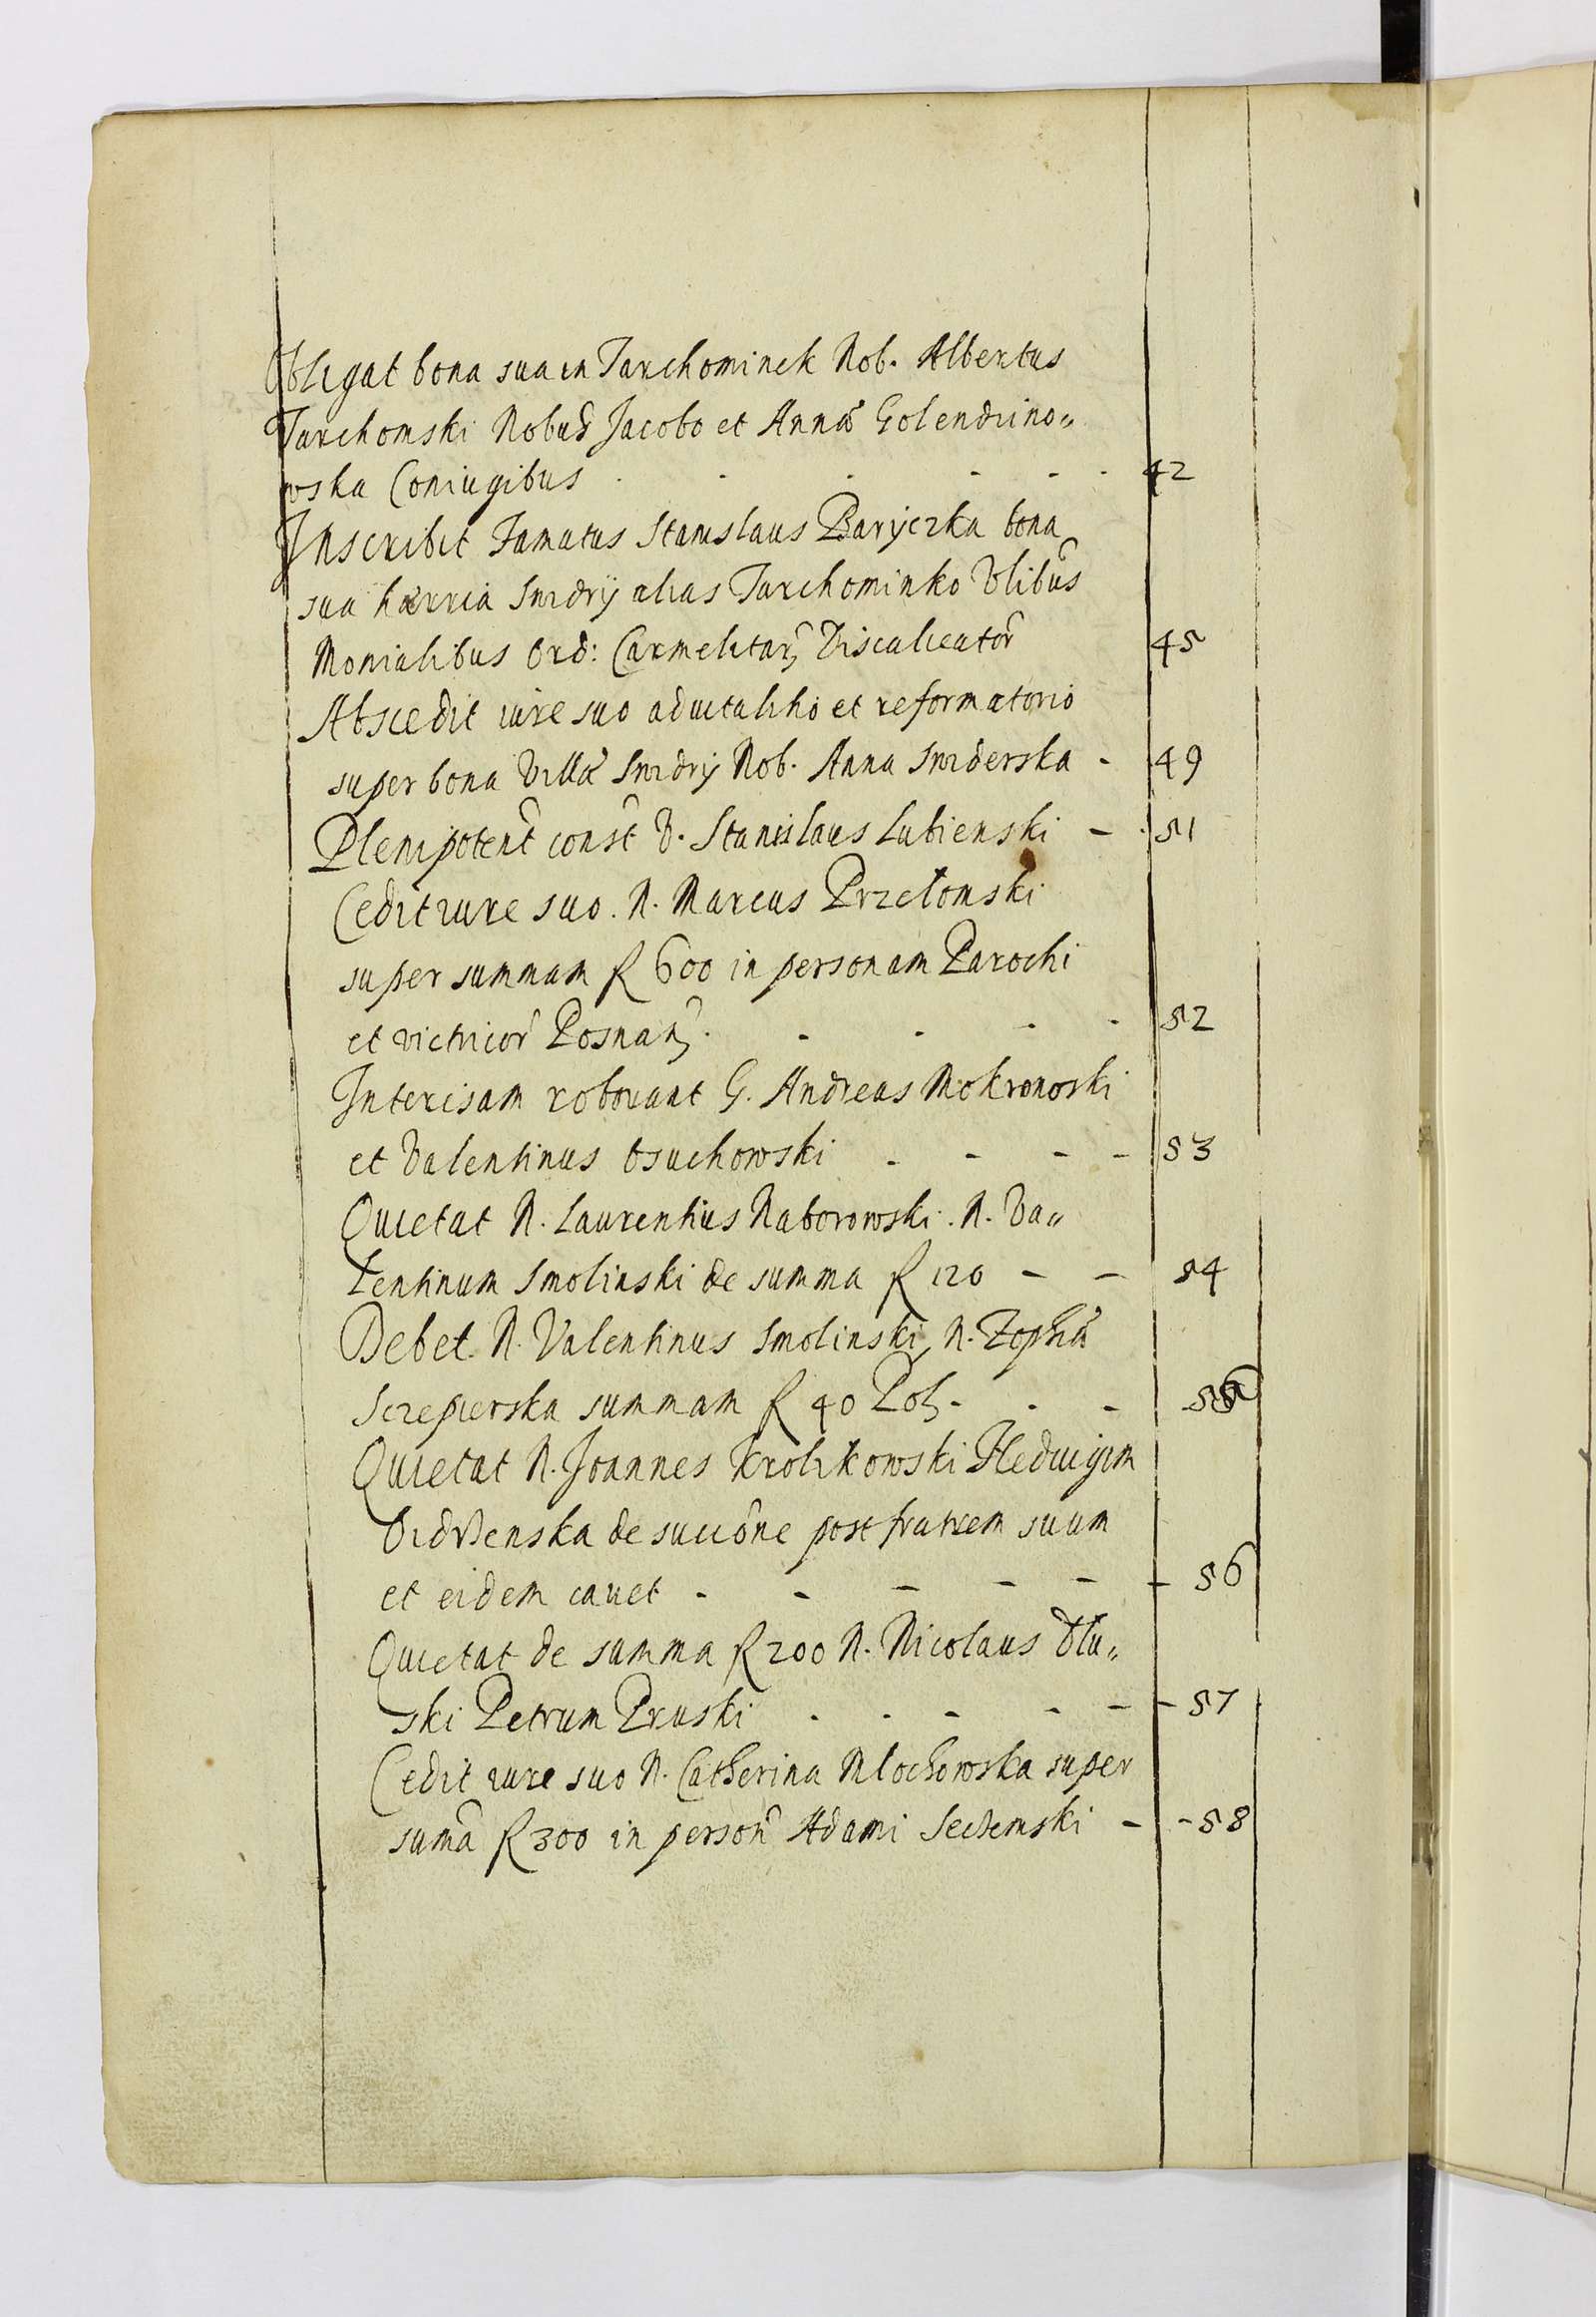 Obligat bona sua in Tarchominek Nob. Albertus
Tarchomski Nobus Jacobo et Anna Golendzino„
wska Coniugibus . - . - - . 42
Inscribit Famatus Stanislaus Baryczka bona
sua hærria Snidry alias Tarchominko Vlibus
Monialibus Ord: Carmelitar Discalceator 45
Abscedit iure suo advitalitio et reformatorio
super bona Villa Snidry Nob. Anna Sniderska - 49
Plenipotent const V. Stanislaus Lubienski - . 51
Cedit iure suo . N. Marcus Przetomski
super summam R 600 in personam Parochi
et victricor Posnan . - - - - 52
Intercisam roborant G. Andreas Mokronoski
et Valentinus Osuchowski - - - - 53
Quietat N. Laurentius Naborowski . N. Va„
lentinum Smolinski de summa R 120 - - 54
Debet N. Valentinus Smolinski N. Zophia
Sczepierska summam R 40 Pol - . - 55
Quietat N. Joannes Krolikowski Hedvigim
de succone post fratrem suum
et eidem cavet - - - - - - 56
Quietat de summa R 200 N. Nicolaus Dlu„
ski Petrum Pruski . . - - - - 57
Cedit iure suo N. Catherina Mlochowska super
suma R 300 in person Adami - - 58